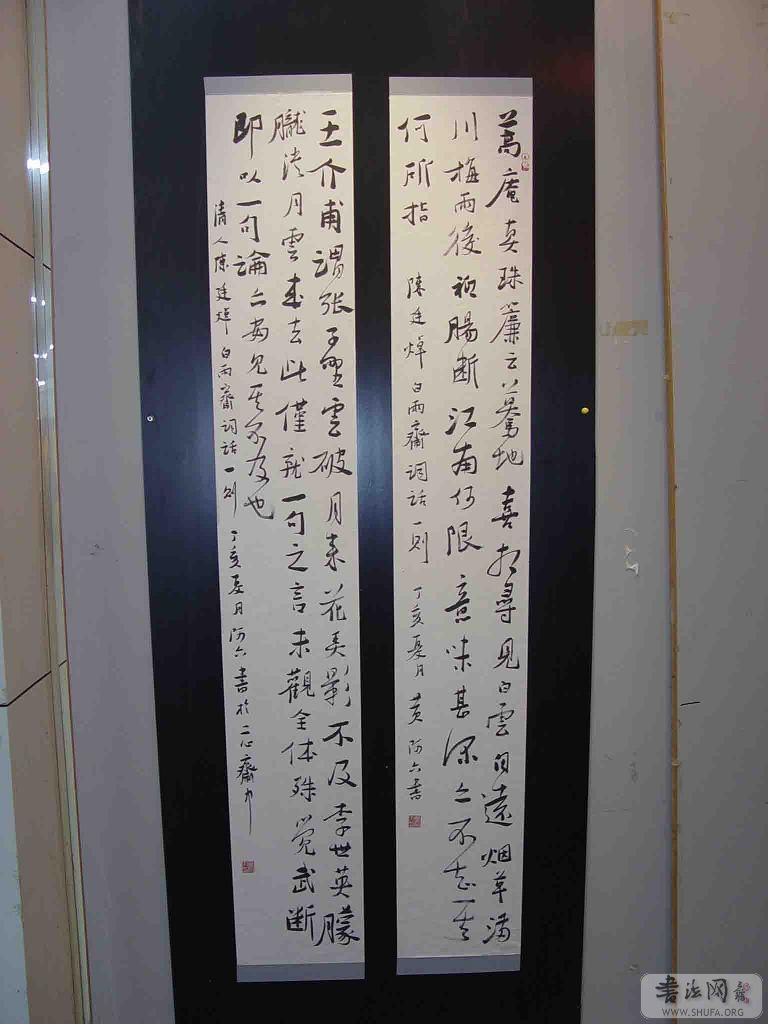 蒿庵真珠簾云蓦地喜相尋見白雲自遠烟草滿
川梅雨後祇腸断江南何限意味甚深亦不知其
何所指
陳廷焯白雨齋詞話一則 丁亥夏月 黄阿六書
王介甫謂張子野雲破月来花弄影不及李世英朦
朧淡月雲来去此僅就一句之言未觀全体殊覺武断
即以一句論亦安見其不及也
清人陳廷焯白雨齋詞話一則 丁亥夏月阿六書於二心齋中
書法网
WWW.SHUFA.ORG